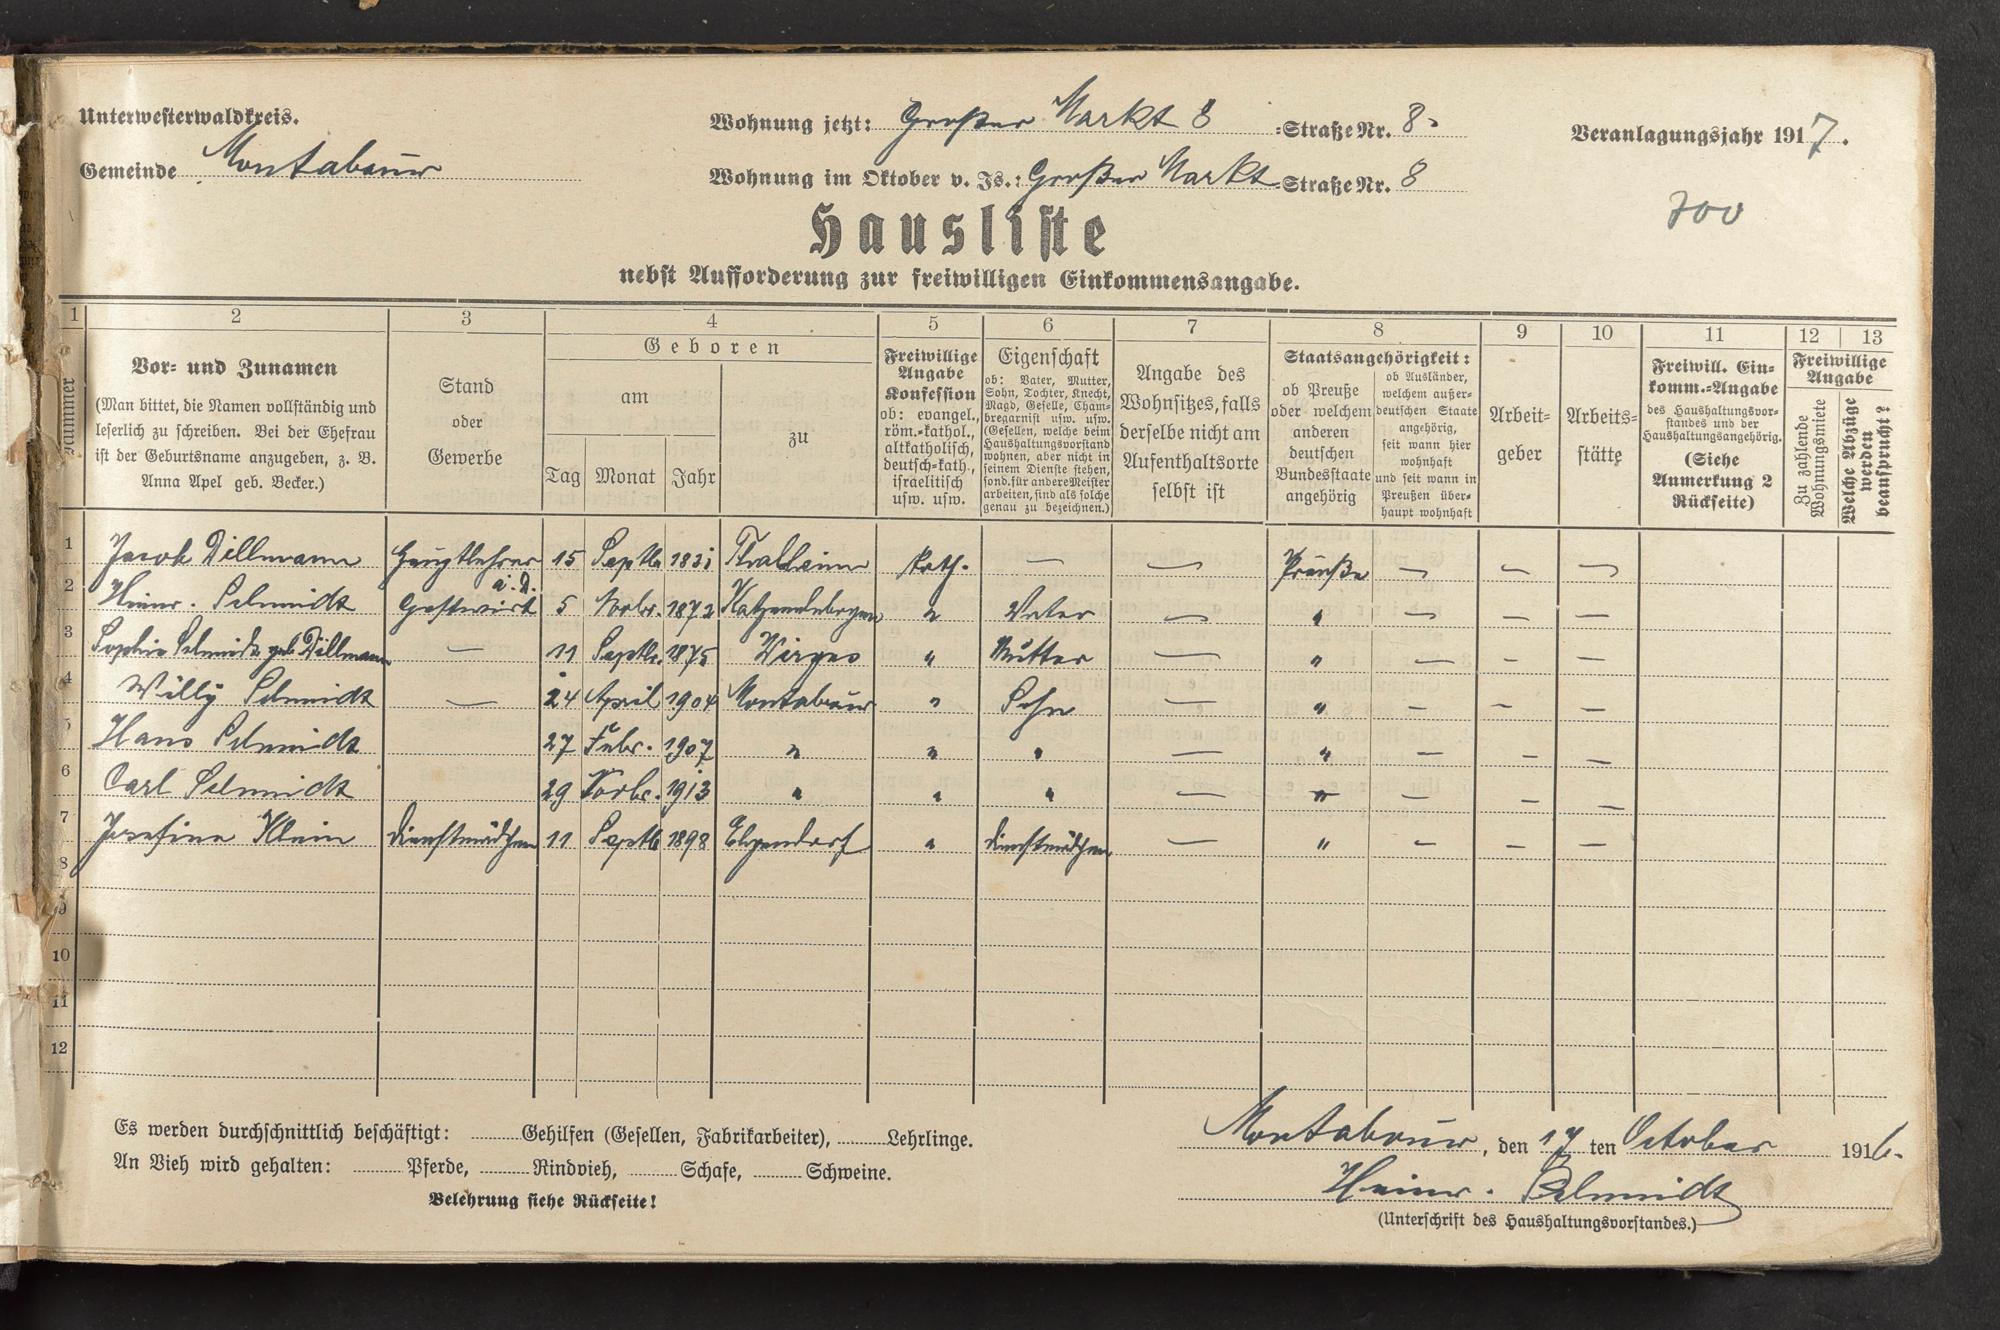 Unterwesterwaldkreis.
Gemeinde Montabaur
Wohnung jetzt: Großer Markt 8 -Straße Nr. 8.
Wohnung im Oktober v. Js.: Großer Markt -Straße Nr. 8
Veranlagungsjahr 1917.
700
Hausliste
nebst Aufforderung zur freiwilligen Einkommensangabe.
1 2 3 4 5 6 7 8 9 10 11 12 13
Nummer
Vor- und Zunamen
(Man bittet, die Namen vollständig und
leserlich zu schreiben. Bei der Ehefrau
ist der Geburtsname anzugeben, z. B.
Anna Apel geb. Becker.)
Stand
oder
Gewerbe
Geboren
am
Tag Monat Jahr
zu
Freiwillige
Angabe
Konfession
ob: evangel.,
röm.-kathol.,
altkatholisch,
deutsch-kath.,
israelitisch
usw. usw.
Eigenschaft
ob: Vater, Mutter,
Sohn, Tochter, Knecht,
Magd, Geselle, Cham-
bregarnist usw. usw.
(Gesellen, welche beim
Haushaltungsvorstand
wohnen, aber nicht in
seinem Dienste stehen,
sond. für andere Meister
arbeiten, sind als solche
genau zu bezeichnen.)
Angabe des
Wohnsitzes, falls
derselbe nicht am
Aufenthaltsorte
selbst ist
Staatsangehörigkeit:
ob Preuße
oder welchem
anderen
deutschen
Bundesstaate
angehörig
ob Ausländer,
welchem außer-
deutschen Staate
angehörig,
seit wann hier
wohnhaft
und seit wann in
Preußen über-
haupt wohnhaft
Arbeit-
geber
Arbeits-
stätte
Freiwill. Ein-
komm.-Angabe
des Haushaltungsvor-
standes und der
Haushaltungsangehörig.
(Siehe
Anmerkung 2
Rückseite)
Freiwillige
Angabe
Zu zahlende
Wohnungsmiete
Welche Abzüge
werden
beansprucht?
1 Jacob Dillmann Hauptlehrer a. D. 15 Septb. Thalheim Kath. — — Preuße — — —
2 Heinr. Schmidt Gastwirt 5 Novbr. 1872 Katzenelnbogen " Vater — " — — —
3 Sophie Schmidt geb Dillmann — 11 Septb. 1875 Wirges " Mutter — " — — —
4 Willy Schmidt — 24 April 1904 Montabaur " Sohn — " — — —
5 Hans Schmidt 27 Febr. 1907 " " " — " — — —
6 Carl Schmidt 29 Novbr. 1913 " " " — " — — —
7 Josefine Klein Dienstmädchen 11 Septb 1898 Elgendorf " Dienstmädchen — " — — —
8
9
10
11
12
Es werden durchschnittlich beschäftigt: Gehilfen (Gesellen, Fabrikarbeiter), Lehrlinge.
An Vieh wird gehalten: Pferde, Rindvieh, Schafe, Schweine.
Belehrung siehe Rückseite!
Montabaur, den 17 ten October 1916.
Heinr. Schmidt
(Unterschrift des Haushaltungsvorstandes.)